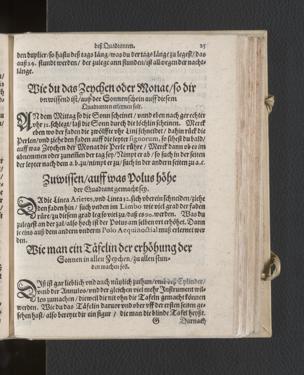 deß Quadranten. 25
den duplier/ so hastu deß tags läng/ was du der tags länge zu legest/ das
auß 24. stundt werden/ der zulege ann stunden/ ist all wegen der nacht
länge.
Wie du das Zeychen oder Monat/ so dir
unwissend ist/ auß der Sonnenschein auff diesem
Quadranten erlernen solt.
An dem Mittag so die Sonn scheinet/ wend
12. schlegt/ laß die Sonn durch die löchlin scheinen. Merck
eben wo der faden die zwölffte uhr Lini schneidet/ dahin rück die
Perlen/ und ziehe den faden auff die letzte signorum, so sihest du bald/
auff was Zeychen der Monat die Perle rühre/ Merck dann ob es im
abnemmen oder zunemmen der tag sey/
der letzer nach dem
Zuwissen/ auff was Polus höhe
der Quadrant gemacht sey.
Da die Linea Arietis, und Linea 12. sich oberein schneiden/ ziehe
den faden hin/ such unden im Limbo wie viel grad der faden
rüre/ zu diesem grad leg so viel zu/ daß es 90. werden. Was du
zulegest an der zal/ also hoch ist der Polus am selben ort erhöhet. Dann
je eins auß dem andern Polo Aequinoctial muß erlernet wer
den.
Wie man ein Täfelin der erhöhung der
Sonnen in allen Zeychen/ zu allen stun-
den machen sol.
Diß ist gar lieblich und auch nützlich zuthun/ Cylinder/
und der Annulos/ und der gleichen viel mehr Instrument wil-
len zumachen/ dieweil die nit ohn die Tafeln gemacht können
werden. Wie du das Täfelin
sehen hast/ also bereyte dir ein figur/ die man die blinde Tafel heyßt.
G Darnach